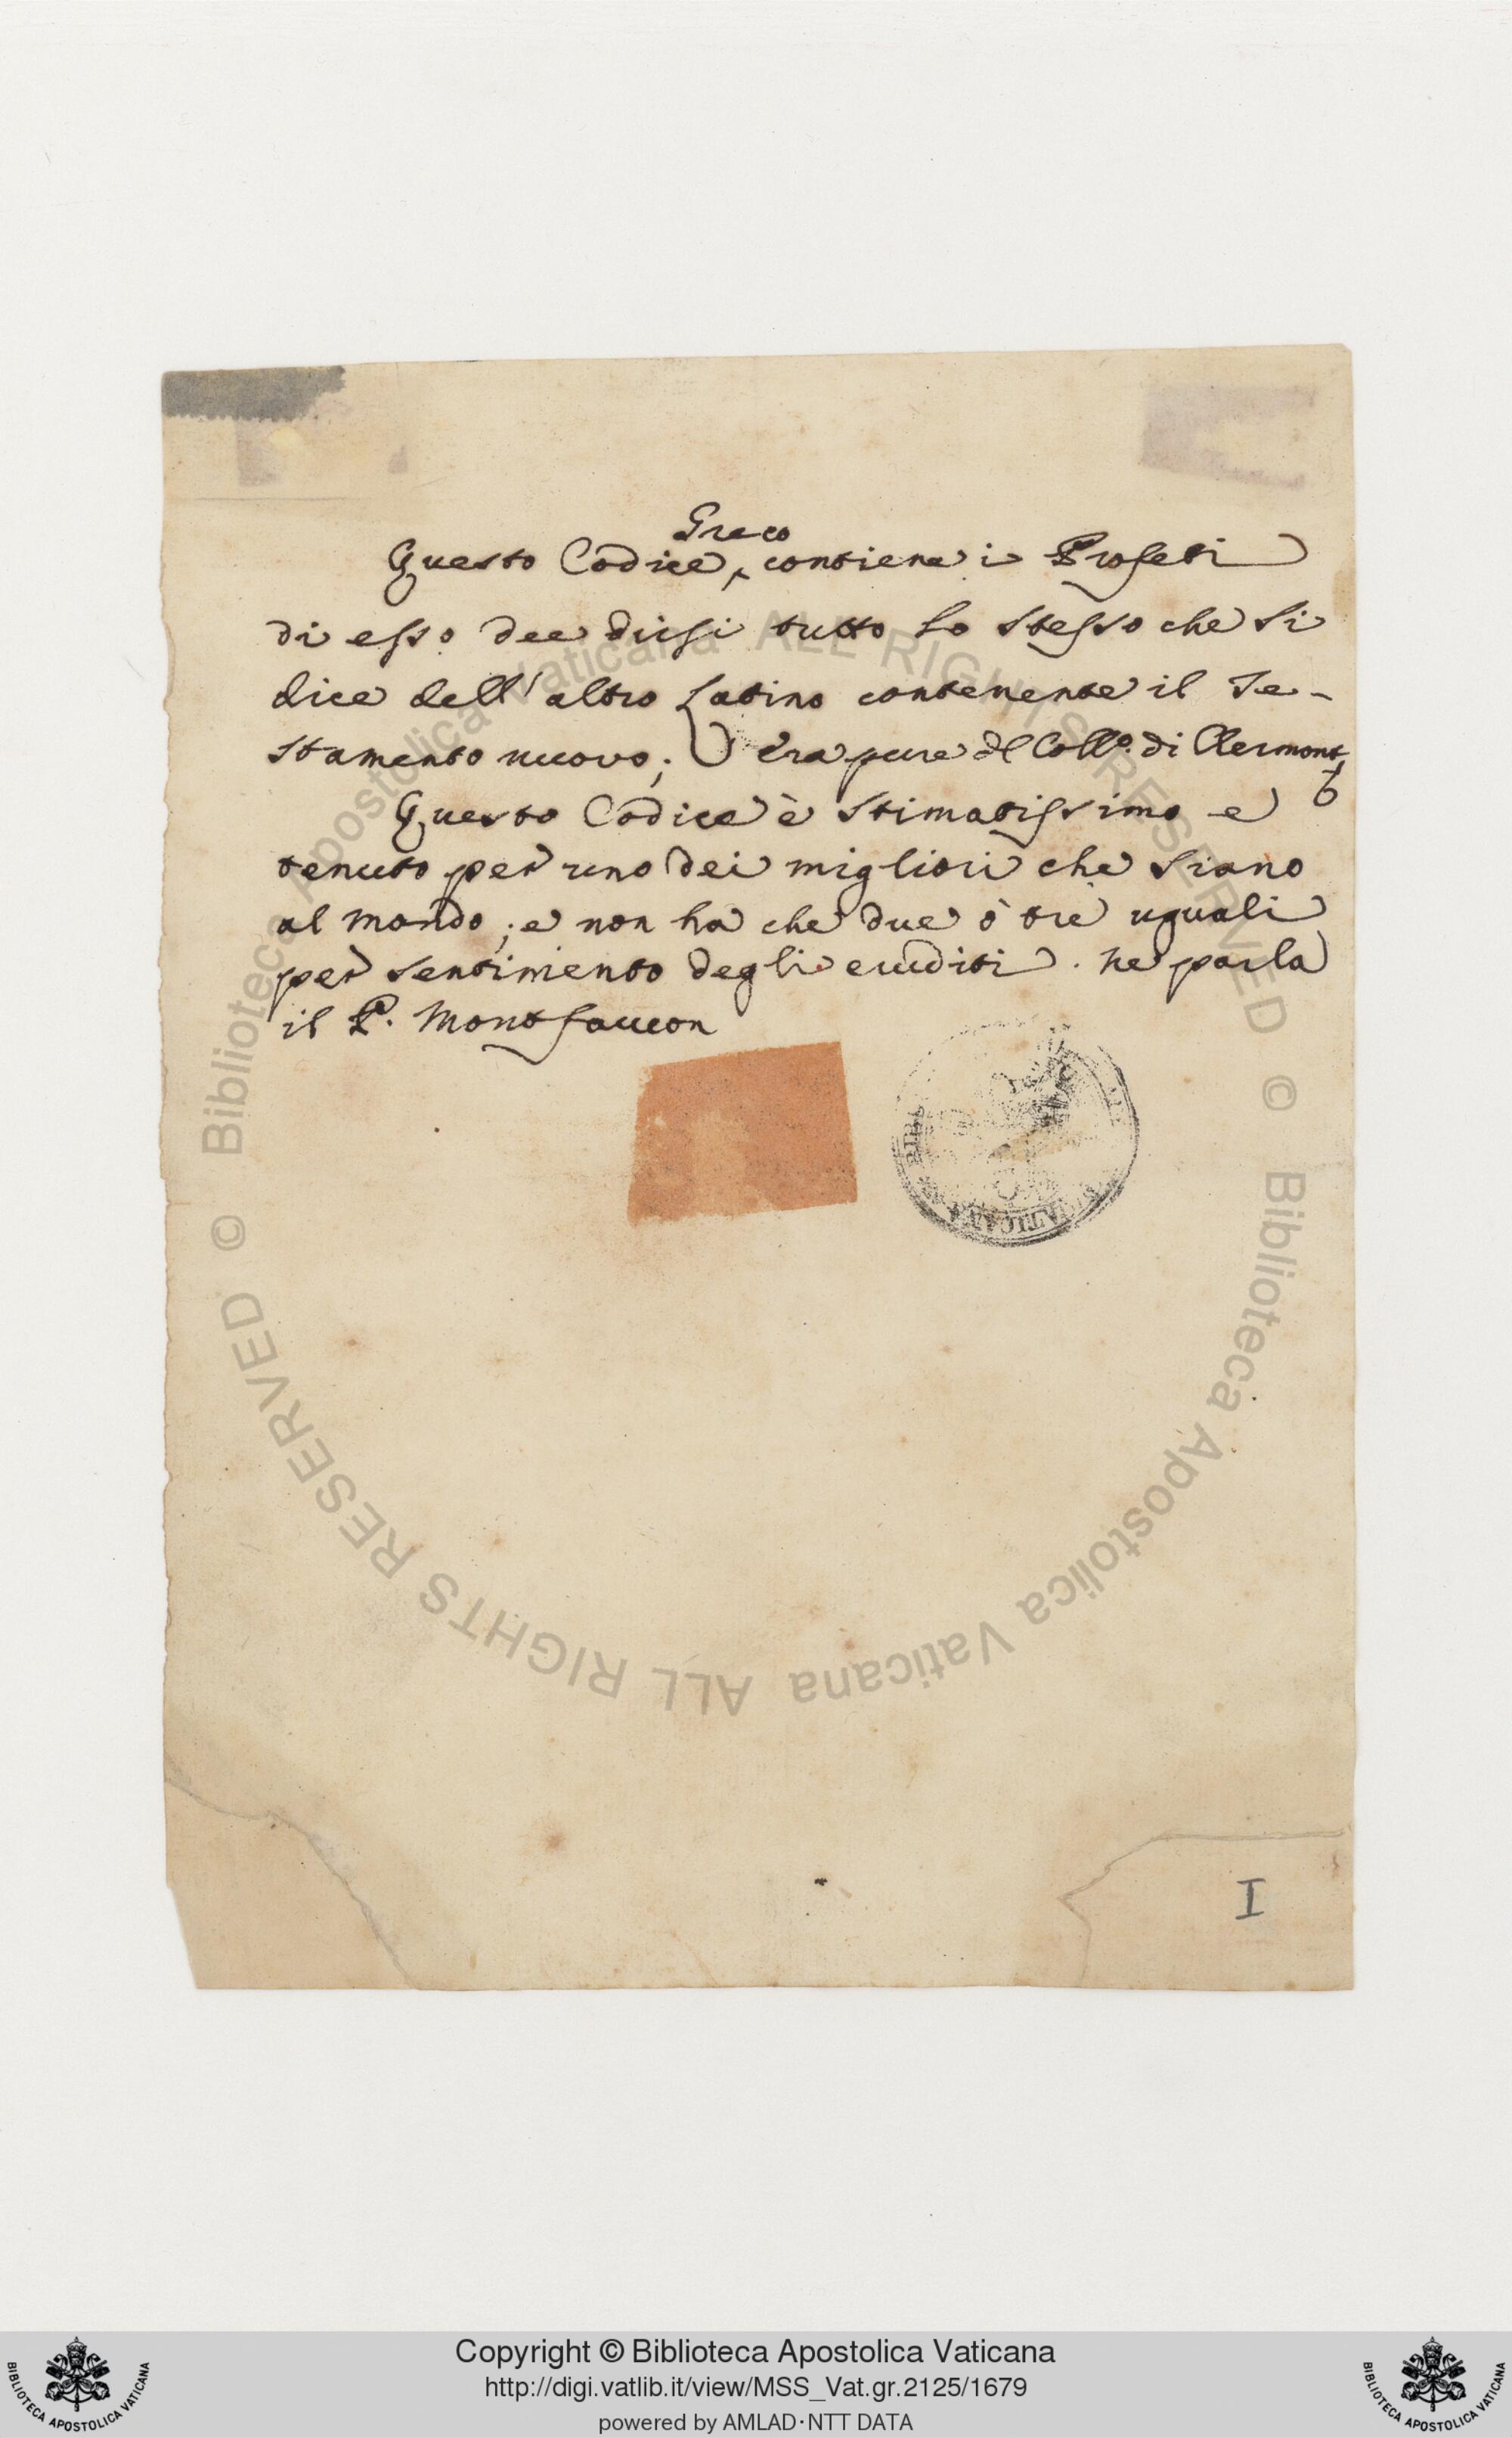 Greco
Questo Codice ‸ contiene i Profeti
di esso dee dirsi tutto lo stesso che si
dice dell' altro Latino contenente il Te-
stamento nuovo; era pure del Collo. di Clermont
Questo Codice è stimatissimo e
tenuto per uno dei migliori che siano
al mondo; e non ha che due ò tre uguali
per sentimento degli eruditi. ne parla
il P. Montfaucon
I
© Biblioteca Apostolica Vaticana ALL RIGHTS RESERVED © Biblioteca Apostolica Vaticana ALL RIGHTS RESERVED
BIBLIOTECA APOSTOLICA VATICANA
Copyright © Biblioteca Apostolica Vaticana
http://digi.vatlib.it/view/MSS_Vat.gr.2125/1679
powered by AMLAD·NTT DATA
BIBLIOTECA APOSTOLICA VATICANA